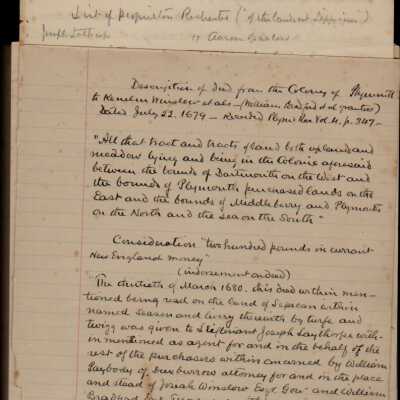 List of Proprietors Rochester ("of the land at Sippican")
Joseph Lothrop
Description of deed from the Colony of Plymouth
to Kenelm Winslow et als — (William Bradford et al grantees)
Dated July 22, 1679 — Recorded Plym. Rec Vol. 4, p. 347 —
"All that tract and tracts of land both upland and
meadow lying and being in the Colonie aforesaid
between the bounds of Dartmouth on the West and
the bounds of Plymouth purchased lands on the
East and the bounds of Middleberry and Plymouth
on the North and the Sea on the South"
Consideration "two hundred pounds in currant
New England money"
(indorsement on deed)
The thirtieth of March 1680. this deed within men-
tioned being read on the land of Sepecan within
named season and livry therewith by turfe and
twigg was given to Lieutenant Joseph Laythorpe with-
in mentioned as agent for and in the behalf of the
rest of the purchasers within concerned by William
Paybody of Duxburrow attorney for and in the place
and stead of Josiah Winslow Esqr Govr and William
Bradford